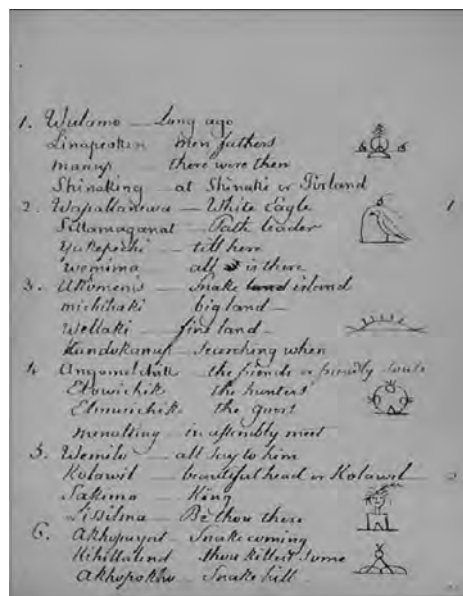 1. Wulamo — Long ago
Linapeokin men fathers
manup — there were then
Shinaking — at Shinaki or Firland
2. Wapallanewa — White Eagle 1
Sittamaganat — Path leader
Yukepechi — till here
Wemima — all is there
3. Akomenis — Snake land island
michihaki big land —
Wellaki — fine land —
Kundokanup — Searching when
4. the friends or friendly souls
Elowichik the hunters
Elmuichik the goers
Menalting — in assembly meet
5. Wemilo — all say to him
Kolawil — beautiful head or Kolawil — 2
Sakima — King
Lissilma — Be thou there
6. Akhopayat — Snake coming
Kihillalend thou killest some
Akhopokho — Snake hill —